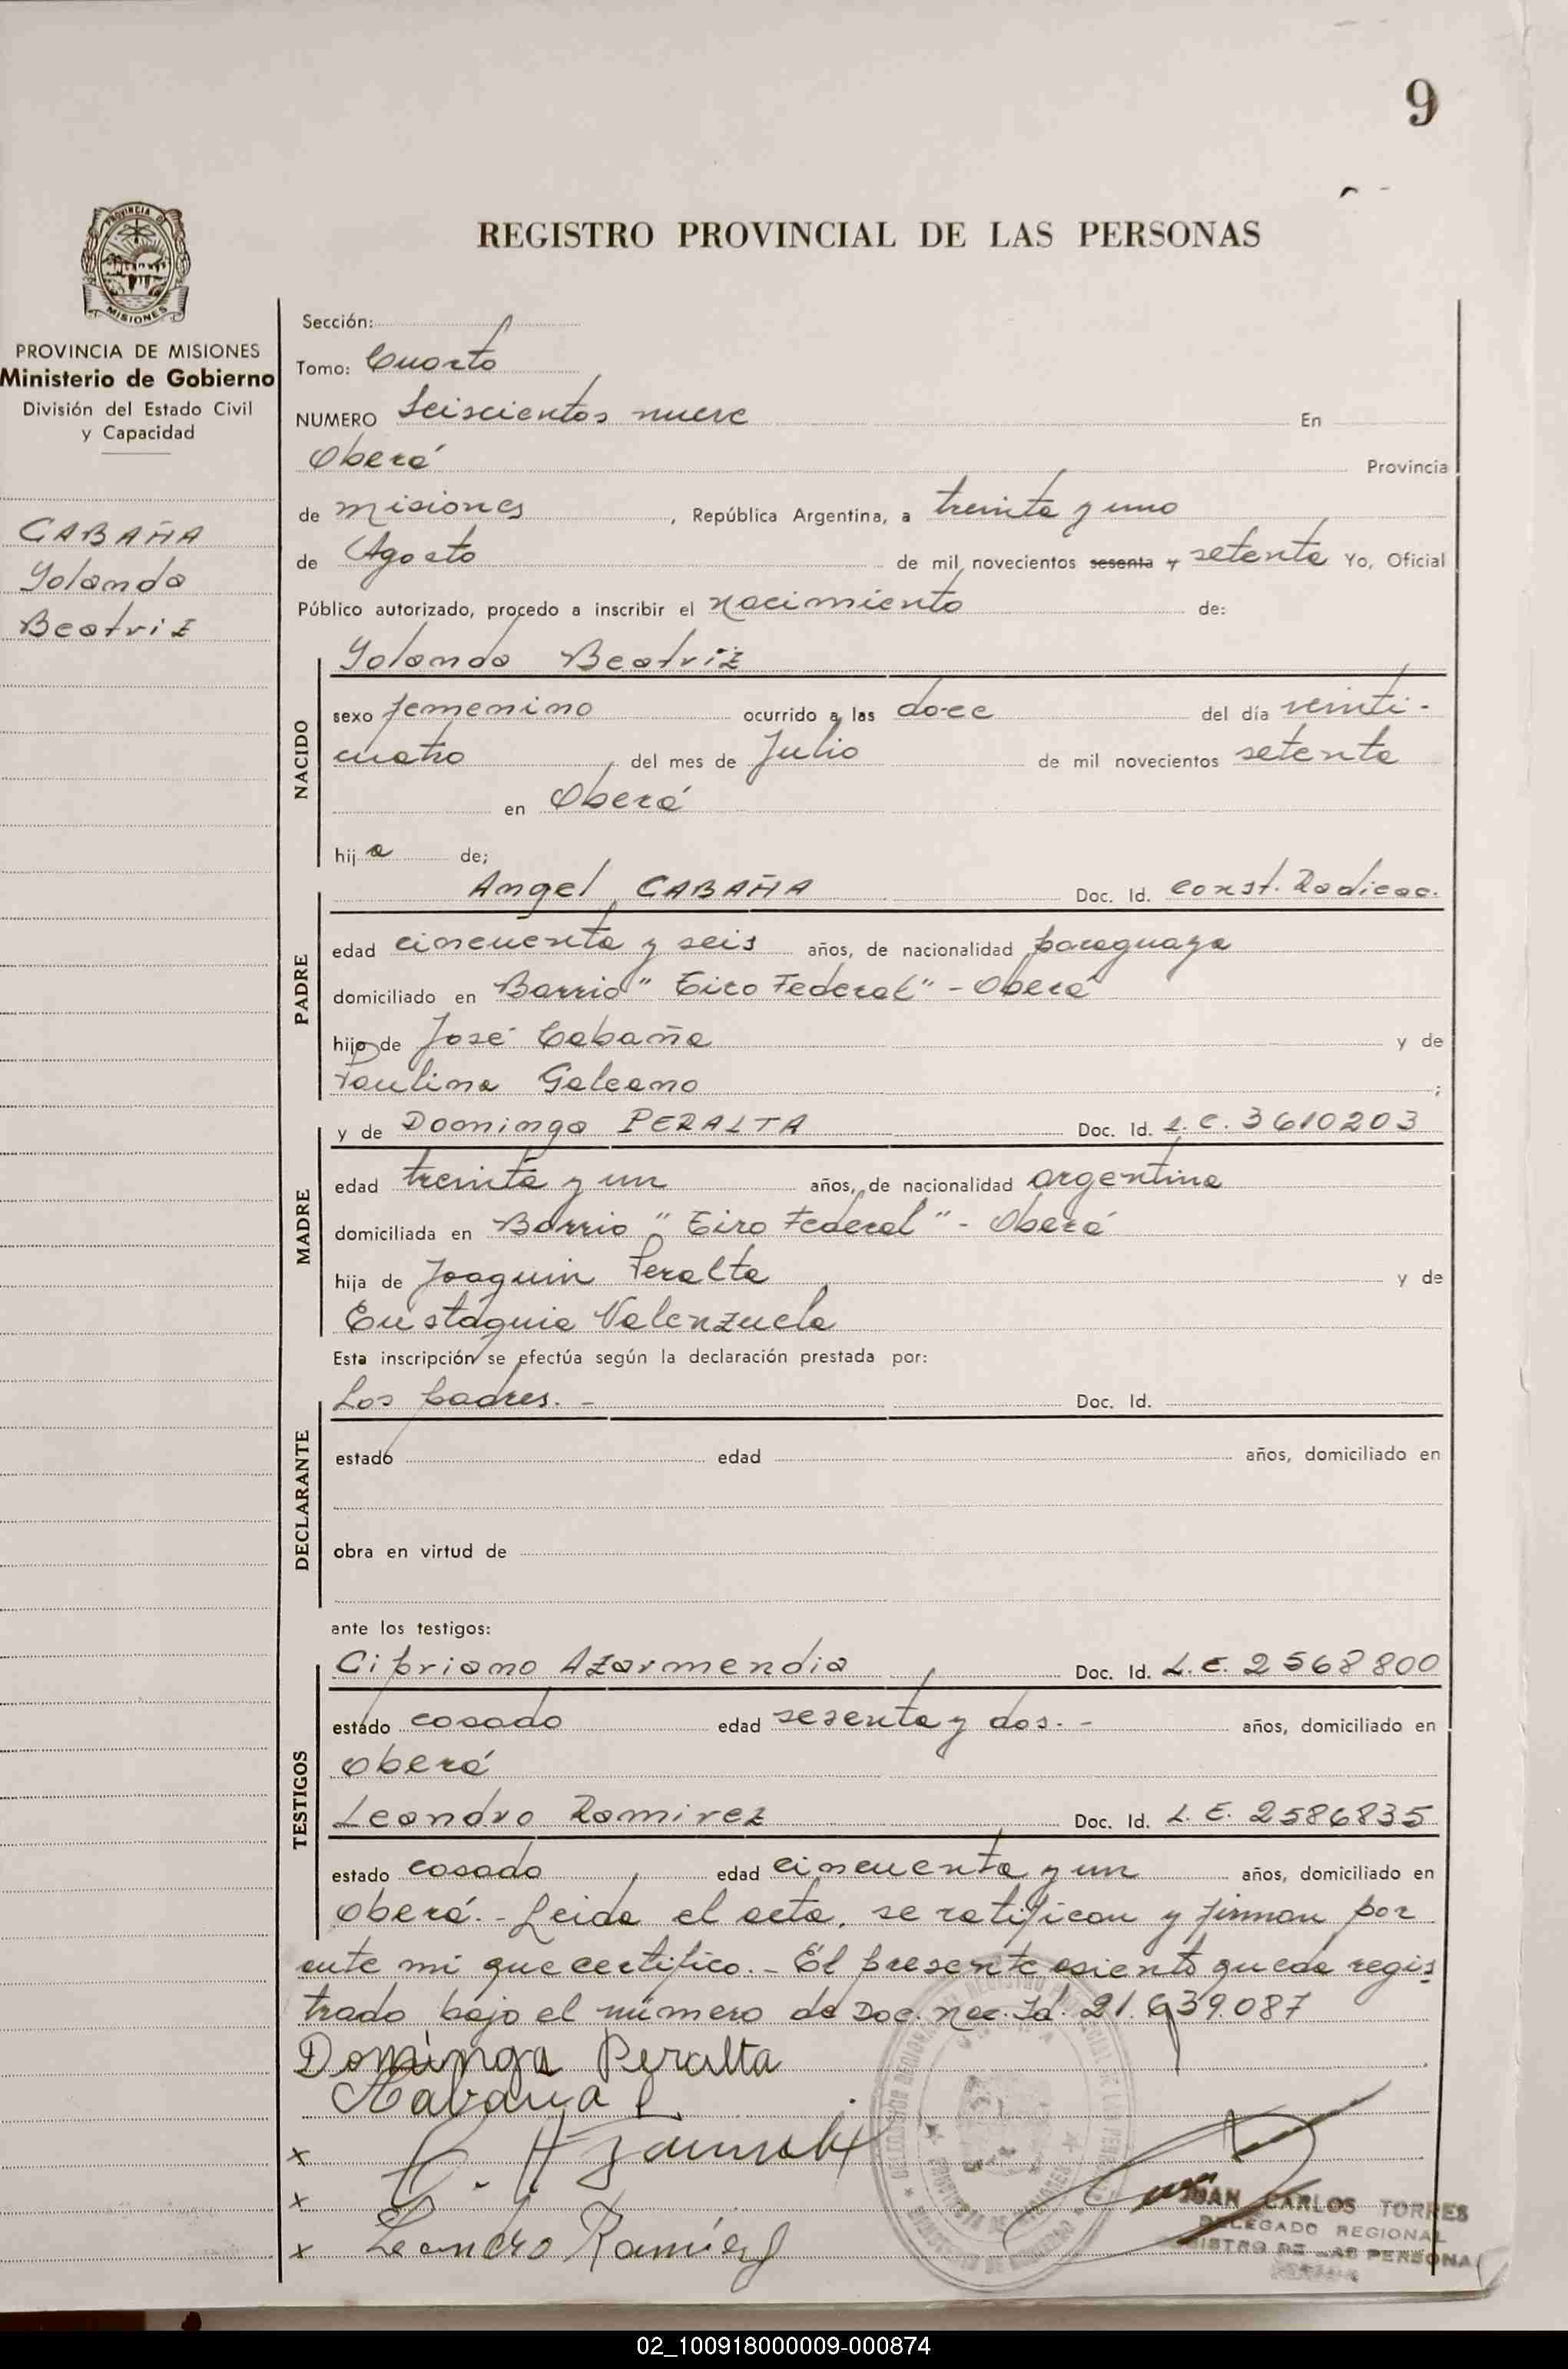 9
REGISTRO PROVINCIAL DE LAS PERSONAS
PROVINCIA DE MISIONES
Ministerio de Gobierno
División del Estado Civil
y Capacidad
CABAÑA
Yolanda
Beatriz
Sección:
Tomo: Cuarto
NUMERO Seiscientos nueve En
Oberá Provincia
de Misiones, República Argentina, a treinta y uno
de Agosto de mil novecientos sesenta y setenta Yo, Oficial
Público autorizado, procedo a inscribir el nacimiento de:
Yolanda Beatriz
NACIDO
sexo femenino ocurrido a las doce del día veinti-
cuatro, del mes de Julio de mil novecientos setenta
en Oberá
hija de;
Angel CABAÑA Doc. Id. const. Radicac.
PADRE
edad cincuenta y seis años, de nacionalidad paraguaya
domiciliado en Barrio "Tiro Federal" - Oberá
hijo de José Cabaña y de
Paulina Galeano;
y de Dominga PERALTA Doc. Id. L.C. 3610203
MADRE
edad treinta y un años, de nacionalidad argentina
domiciliada en Barrio "Tiro Federal" - Oberá
hija de Joaquin Peralta y de
Eustaquia Valenzuela
Esta inscripción se efectúa según la declaración prestada por:
Los padres. - Doc. Id.
DECLARANTE
estado edad años, domiciliado en
obra en virtud de
ante los testigos:
Cipriano Azarmendia Doc. Id. L.E. 2568800
TESTIGOS
estado casado edad sesenta y dos.- años, domiciliado en
Oberá
Leandro Ramirez Doc. Id. L.E. 2586835
estado casado edad cincuenta y un años, domiciliado en
Oberá.- Leida el acta, se ratifican y firman por
ante mi que certifico.- El presente asiento queda regis
trado bajo el número de Doc. Nac. Id. 21.639.087
Dominga Peralta
x
x
x Leandro Ramirez
JUAN CARLOS TORRES
DELEGADO REGIONAL
REGISTRO DE LAS PERSONAS
02_100918000009-000874